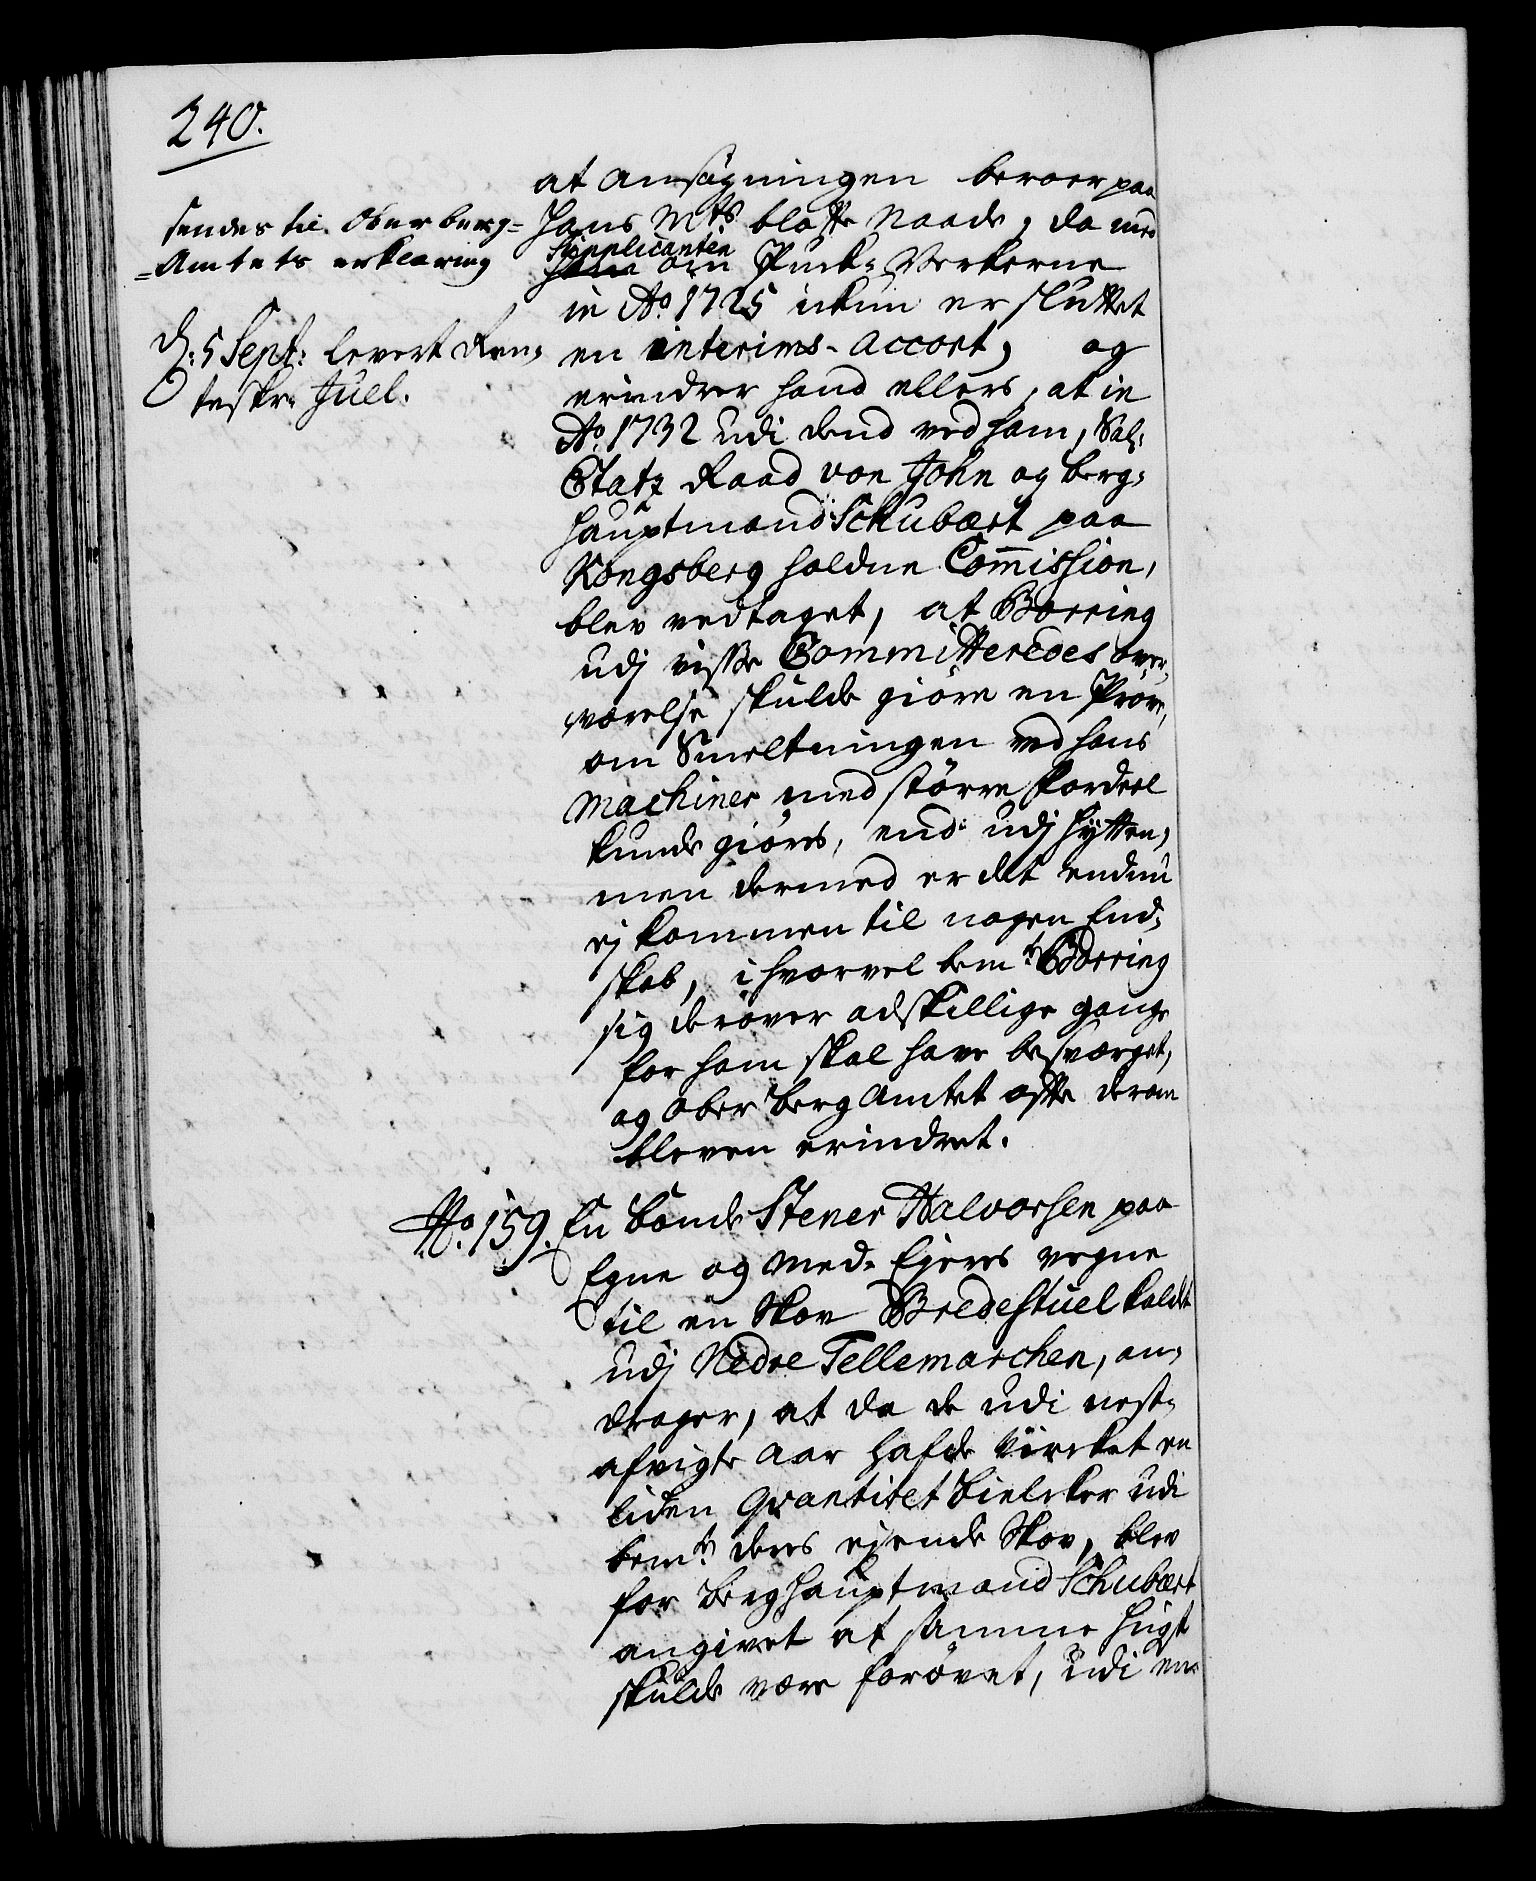 240.
sendes til Oberberg-
-Amtets erklæring
d: 5 Sept: levert Ren-
teskr: Juel.
at ansøgningen beroer paa
Hans Mts blotte Naade, da med
Supplicanten
om Puck-Verkerne
in Ao. 1725 ickun er sluttet
en interims-Accort, og
erindrer hand ellers, at in
Ao. 1732 udi dend ved ham, Sal:
Etatz Raad von John og Berg-
hauptmand Schubart paa
Kongsberg holdne Commission,
blev vedtaget, at Borring
udj visse Committeredes over-
værelse skulde giøre en Prøve,
om Smeltningen ved hans
Machiner med større fordeel
kunde giøres, end udj Hytten,
men dermed er det endnu
ej kommen til nogen End-
skab, i hvorvel bemte Borring
sig derover adskillige gange
for ham skal have besværget,
og Ober Berg Amtet ofte derom
bleven erindret.
No. 159. En Bonde Stener Halvorsen paa
Egne og Med-Ejeres vegne
til en Skov Bredestuel kaldet
udj Nedre Tellemarchen, an-
drager, at da de udi nest-
afvigte Aar hafde virket en
liden Qvantitet Bielcker udi
bemte deres ejende Skov, blev
for Berghauptmand Schubart
angivet at samme hugst
skulde være forøvet, udi en